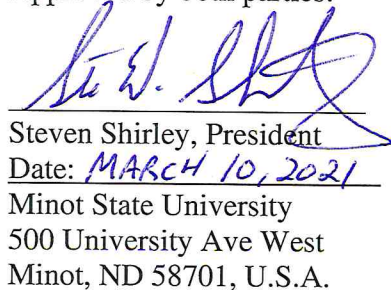 Steven Shirley, President
Date: MARCH 10, 2021
Minot State University
500 University Ave West
Minot, ND 58701, U.S.A.